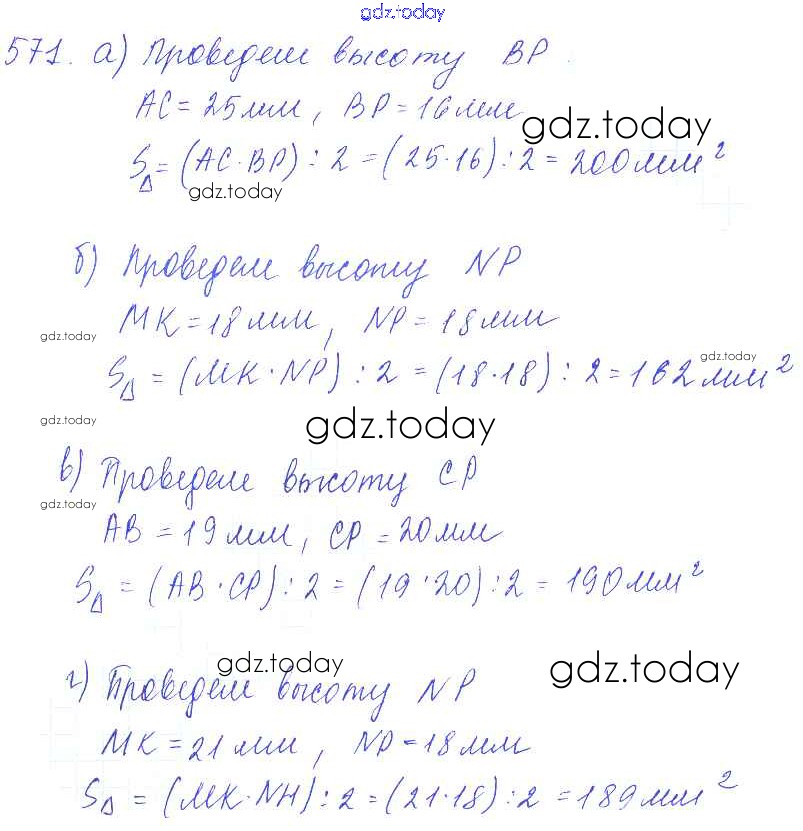 gdz.today
571. а) Проведем высоту BP.
AC = 25 мм, BP = 16 мм
gdz.today
S△ = (AC·BP) : 2 = (25·16) : 2 = 200 мм²
gdz.today
б) Проведем высоту NP
MK = 18 мм, NP = 18 мм
gdz.today
gdz.today
S△ = (MK·NP) : 2 = (18·18) : 2 = 162 мм²
gdz.today
gdz.today
в) Проведем высоту CP
gdz.today
AB = 19 мм, CP = 20 мм
S△ = (AB·CP) : 2 = (19·20) : 2 = 190 мм²
gdz.today
gdz.today
г) Проведем высоту NP
MK = 21 мм, NP = 18 мм
S△ = (MK·NH) : 2 = (21·18) : 2 = 189 мм²